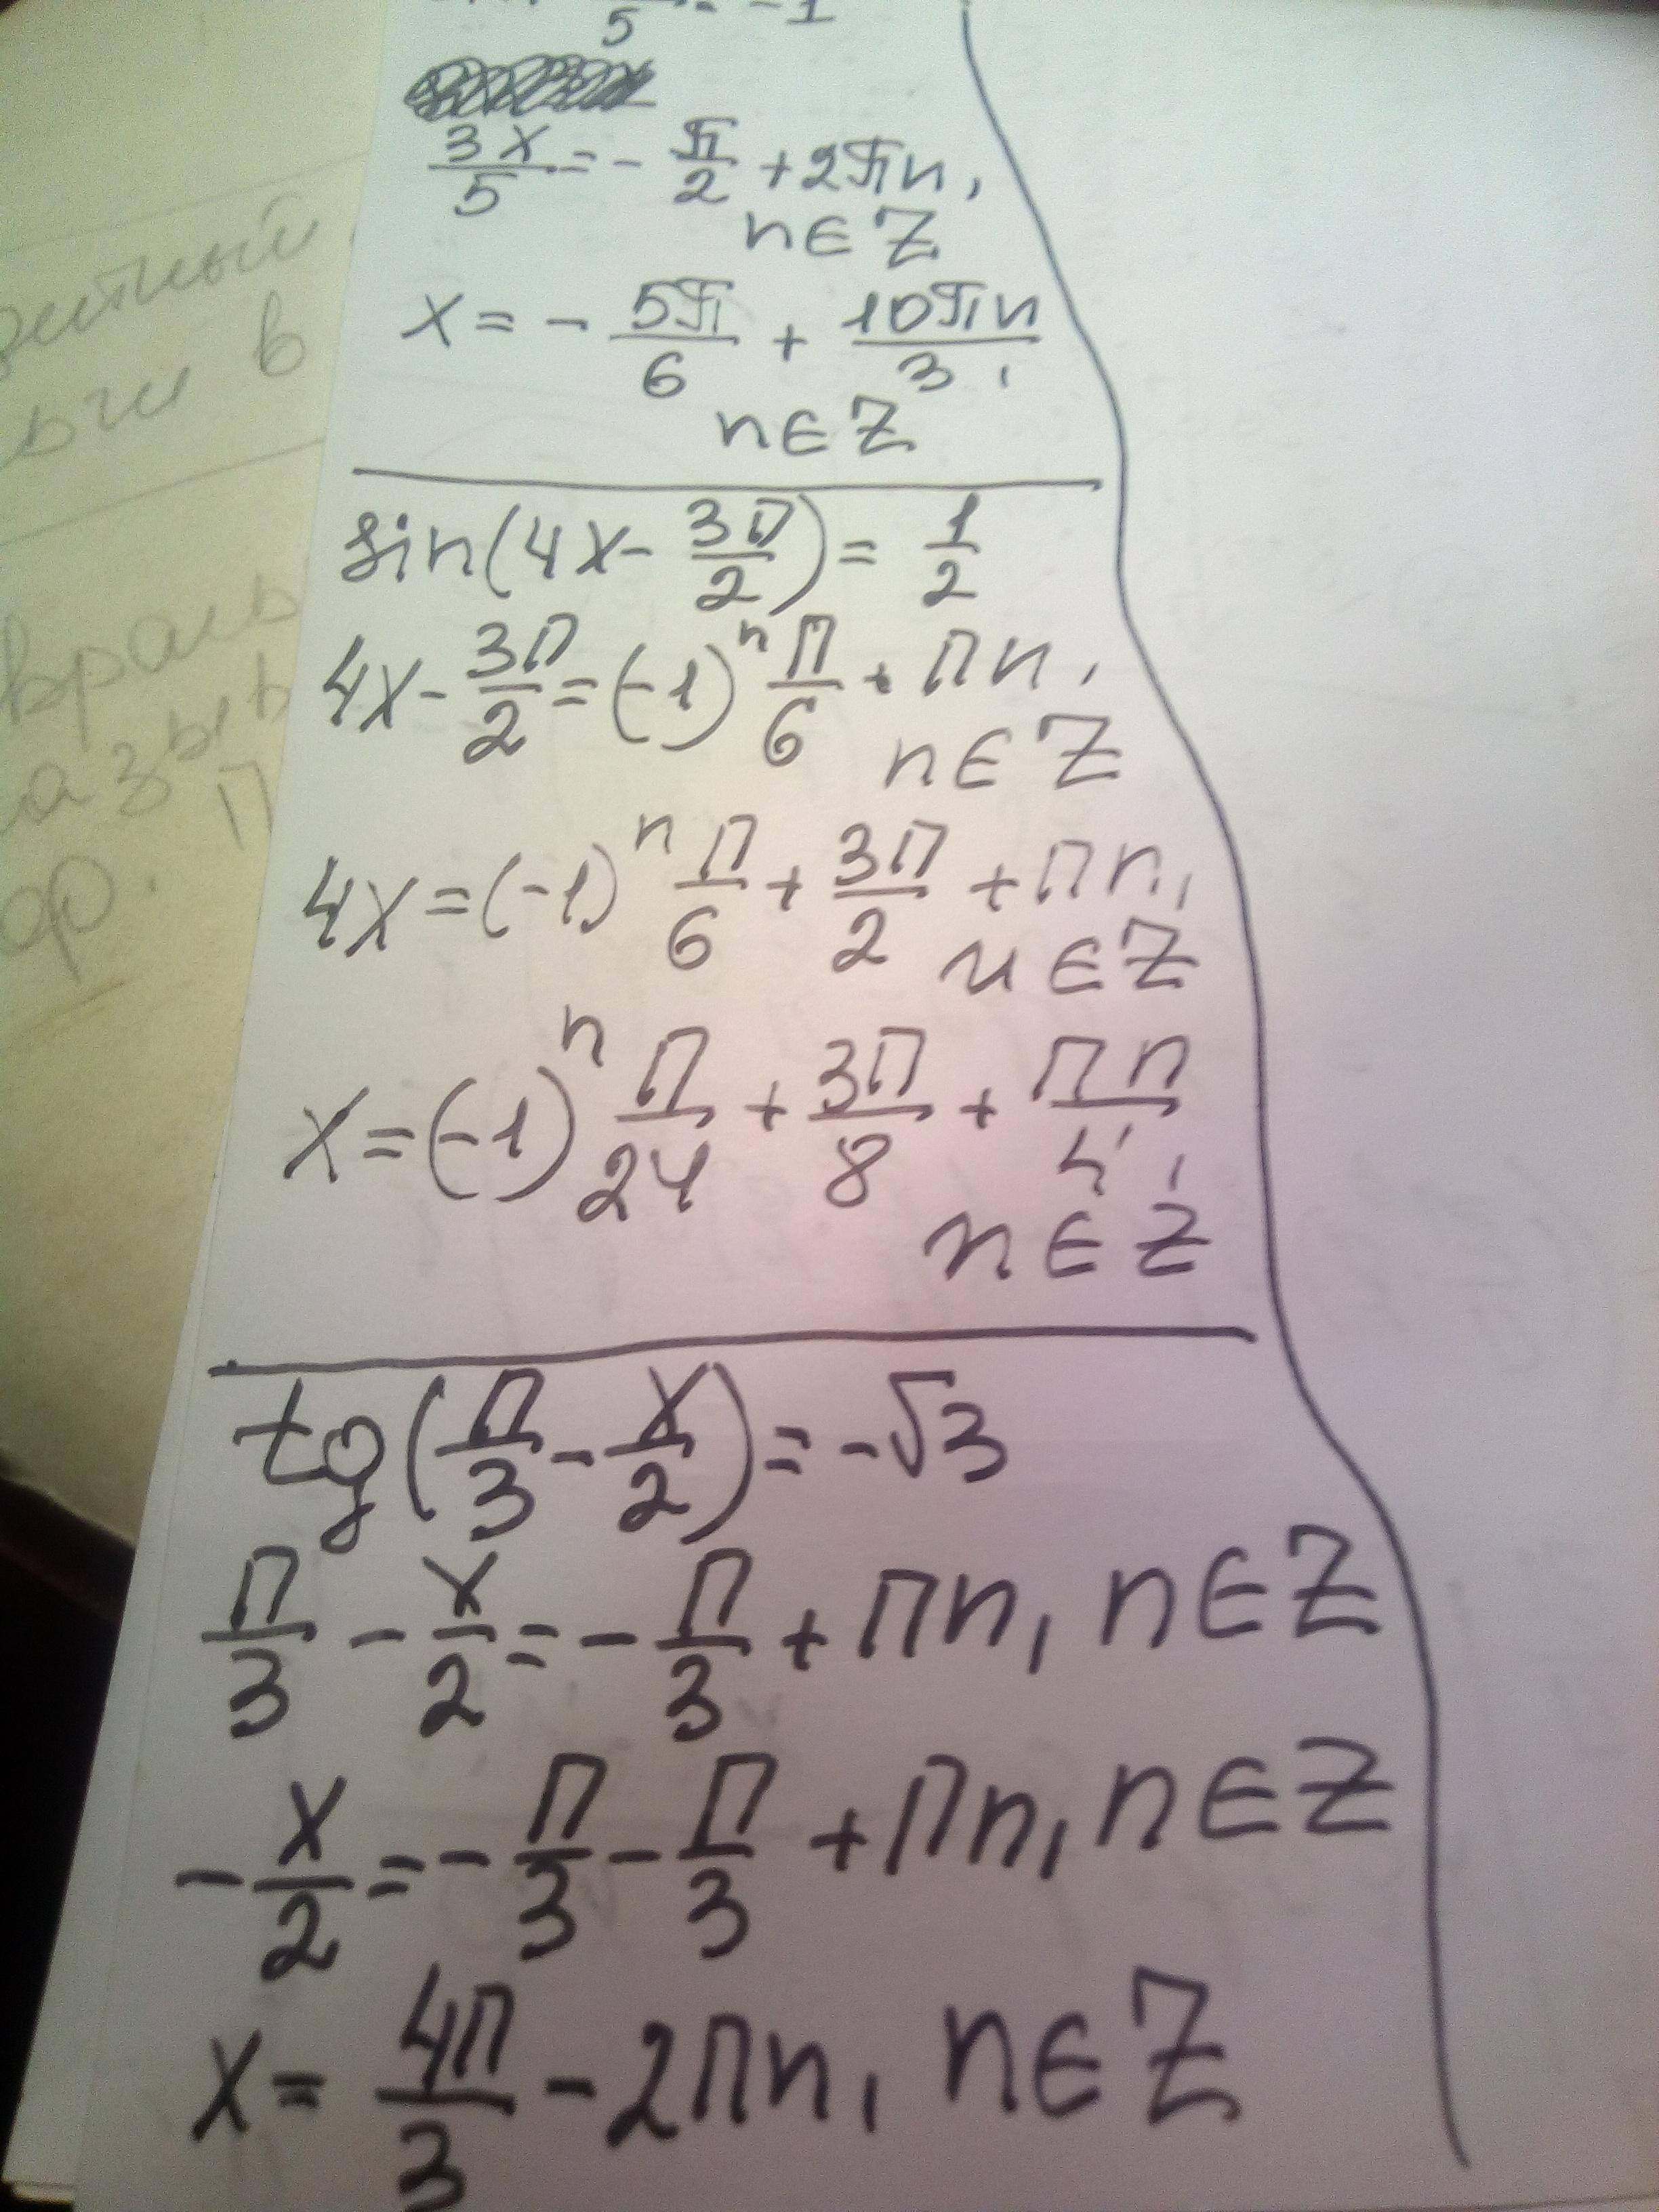 5 = -1
3x/5 = - π/2 + 2πn,
n∈Z
x = - 5π/6 + 10πn/3,
n∈Z
sin(4x - 3π/2) = 1/2
4x - 3π/2 = (-1)^n π/6 + πn,
n∈Z
4x = (-1)^n π/6 + 3π/2 + πn,
n∈Z
x = (-1)^n π/24 + 3π/8 + πn/4,
n∈Z
tg(π/3 - x/2) = -√3
π/3 - x/2 = - π/3 + πn, n∈Z
- x/2 = - π/3 - π/3 + πn, n∈Z
x = 4π/3 - 2πn, n∈Z